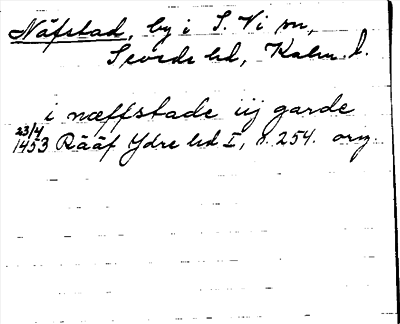 Näfstad, by i S. Vi sn,
Sevede hd, Kalm. l.
i næffstade iij garde
23/4 1453 Rääf Ydre hd I, s. 254. orig.